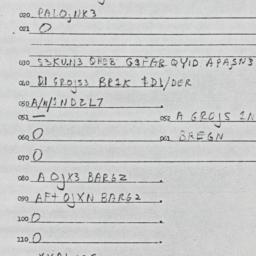 020 PALOJNK3
021 O
030 S3KUN3 QHE2 G3FAR QYID APASN3
040 DI GROJS3 BRIK IDI/DER
050 A/N/1ND2L7
051 — 052 A GROJS IN
060 O 061 BREGN
070 O
080 A OJX3 BARG2
090 AF+ OJXN BARG2
100 O
110 O